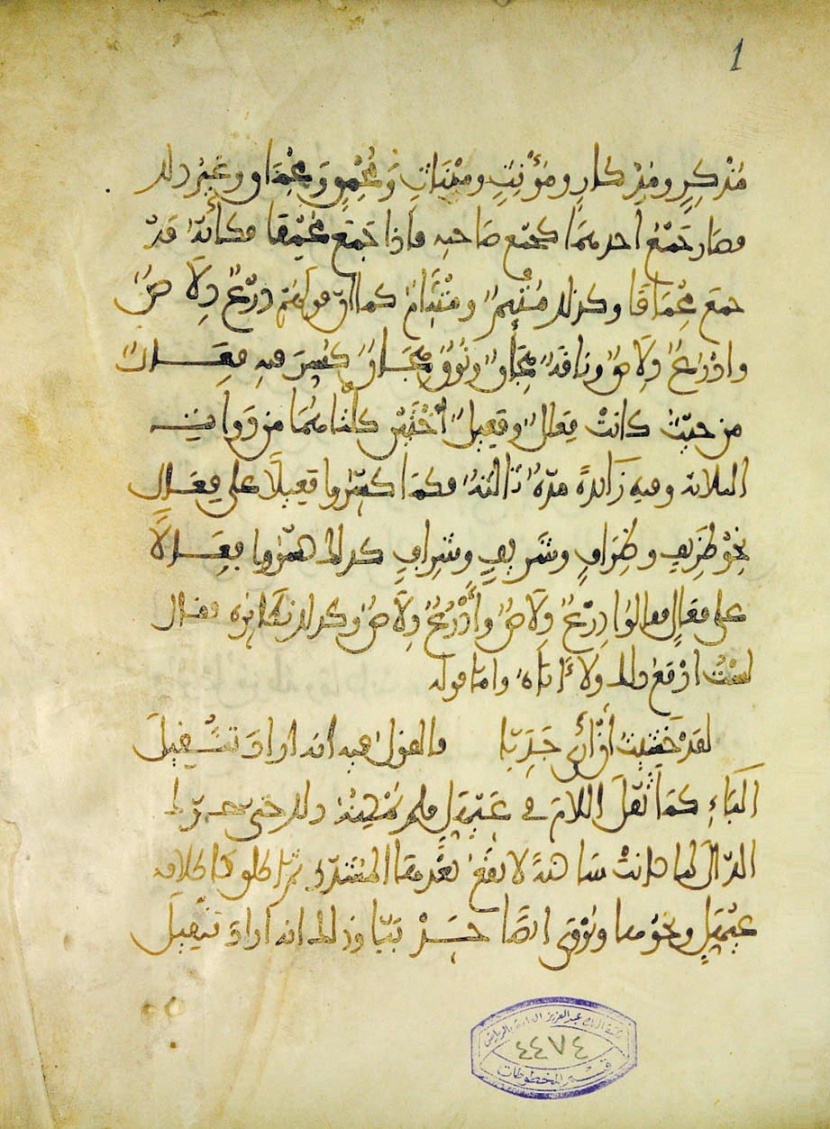 1
مُذْكِرٍ ومِذْكارٍ ومُؤْنِثٍ ومِئْنَاثٍ وَمُحْمِقٍ وَمِحْمَاقٍ وغَيْرِ ذلك
فصَار جَمْعُ احدهمَا كجمْع صَاحبه فاذا جَمَعَ مُحْمِقا فكأنّهُ قَدْ
جمعَ مِحْمَاقا وكذلك مُتْئِمٌ ومِتْآمٌ كما انّ قولهُم دِرْعٌ دِلَاصٌ
وادْرُعٌ دِلَاصٌ وناقَةٌ هِجَانٌ ونُوقٌ هِجَانٌ كُسِّرَ فيه فِعَالٌ
من حيْثُ كانتْ فِعَالٌ وفَعِيلٌ أُخْتَيْن كلتاهُمَا من ذَواتِ
الثلاثة وفيه زَائدةٌ مَدّةٌ ثَالثةٌ فكمَا كسّرُوا فعِيلًا على فِعَالٍ
نحْوُ ظَرِيفٍ وظِرَافٍ وشَرِيفٍ وشِرافٍ كذلك كسّرُوا فِعَالًا
على فِعَالٍ فقالُوا دِرْعٌ دِلَاصٌ وأَدْرُعٌ دِلَاصٌ وكذلك نَظَائِرُه فقال
لسْتُ ادْفَعُ ذلك ولا آبَاهُ وامّا قوله
لقَدْ خَشِيتُ أنْ أَرَى جَدَبّا فالقولُ فيه انه ارادَ تثقيلَ
البَاءِ كمَا ثقّلَ اللامَ في عَيْهَلٍّ فلم يُمْكِنْهُ ذلك حتى حرّك
الدّالَ لمّا كانتْ سَاكنةً لا يَقَعُ بعْدهَا المُشَدّدُ ثمّ اطلق كاطلاقه
عَيْهَلٍّ ونحْوُها ويُرْوَى ايضًا جَدْبَبَّا وذلك انه ارادَ تثقيلَ
مكتبة الملك عبد العزيز العامة بالرياض
٤٤٧٤
قسم المخطوطات